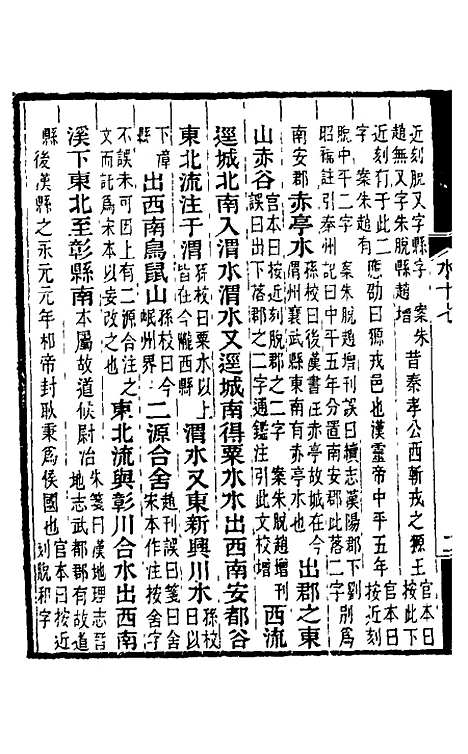 水十七
二
近刻脫又字縣字 案朱趙無又字朱脫縣趙增 昔秦孝公西斬戎之獂王 官本曰按此下
近刻衍于此二字 案朱趙有 應劭曰獂戎邑也漢靈帝中平五年 官本曰按近刻
脫中平二字 案朱脫趙增刊誤曰續志漢陽郡下劉昭補註引秦州記曰中平五年分置南安郡此落二字 別爲
南安郡赤亭水 孫校曰後漢書注赤亭故城在今渭州襄武縣東南有赤亭水也 出郡之東
山赤谷 官本曰按近刻脫郡之二字 案朱脫趙增刊誤曰出下落郡之二字通鑑注引此文校增 西流
逕城北南入渭水渭水又逕城南得粟水水出西南安都谷
東北流注于渭 孫校曰粟水以上今隴西縣 渭水又東新興川水 孫校曰以
下漳縣 出西南鳥鼠山 孫校曰今岷州界 二源合舍 趙刊誤曰箋曰舍宋本作注按舍字
不誤未可因上有二源合注之文而記爲宋本以妄改之也 東北流與彰川合水出西南
溪下東北至彰縣南 本屬故道候尉治 朱箋曰漢地理志晉地志武都郡有故道
縣 後漢縣之永元元年和帝封耿秉爲侯國也 官本曰按近刻脫和字